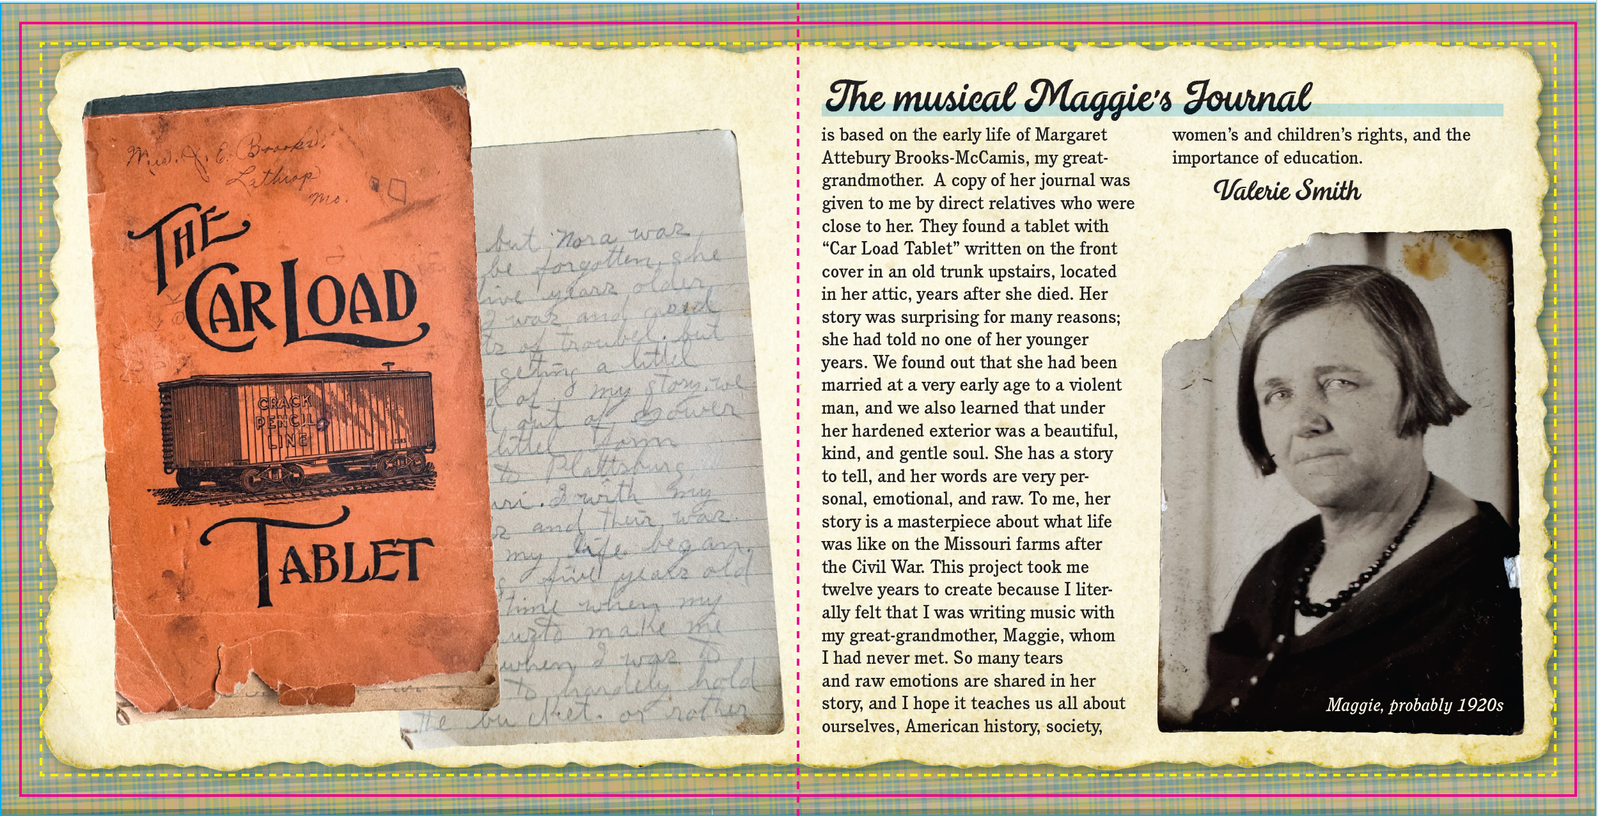 Mrs. J. E. Brooks.
Lathrop
Mo.
THE
CAR LOAD
CRACK
PENCIL
LINE
TABLET
but Nora was
be forgotten, she
five years older
I was and
of troubel. but
getting a littel
of my story, we
out of
littel
to Plattsburg
I with my
and their was
my life began.
five years old
time when my
to make me
when I was
to hardely hold
the bucket. or rather
The musical Maggie's Journal
is based on the early life of Margaret
Attebury Brooks-McCamis, my great-
grandmother.  A copy of her journal was
given to me by direct relatives who were
close to her. They found a tablet with
“Car Load Tablet” written on the front
cover in an old trunk upstairs, located
in her attic, years after she died. Her
story was surprising for many reasons;
she had told no one of her younger
years. We found out that she had been
married at a very early age to a violent
man, and we also learned that under
her hardened exterior was a beautiful,
kind, and gentle soul. She has a story
to tell, and her words are very per-
sonal, emotional, and raw. To me, her
story is a masterpiece about what life
was like on the Missouri farms after
the Civil War. This project took me
twelve years to create because I liter-
ally felt that I was writing music with
my great-grandmother, Maggie, whom
I had never met. So many tears
and raw emotions are shared in her
story, and I hope it teaches us all about
ourselves, American history, society,
women’s and children’s rights, and the
importance of education.
Valerie Smith
Maggie, probably 1920s